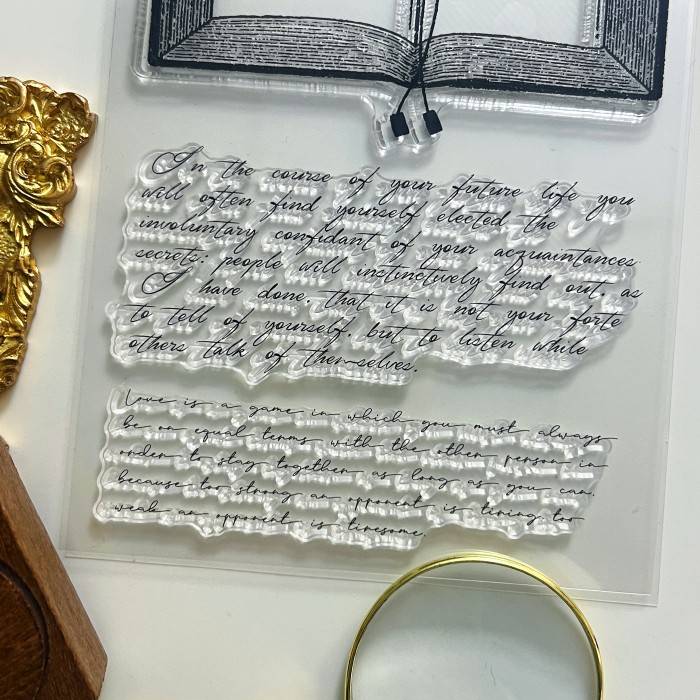 In the course of your future life you
will often find yourself elected the
involuntary confidant of your acquaintances
secrets: people will instinctively find out, as
I have done, that it is not your forte
to tell of yourself, but to listen while
others talk of themselves.
Love is a game in which you must always
be on equal terms with the other person in
order to stay together as long as you can,
because too strong an opponent is tiring too
weak an opponent is tiresome.